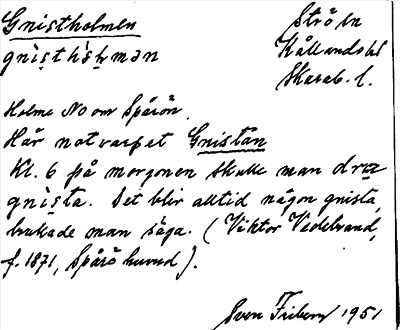 Gnistholmen
Strö sn
gnìsthə̀ḷmən
Kållands hd
Skarab. l.
Holme NO om Spårön.
Här notvarpet Gnistan
Kl. 6 på morgonen skulle man dra
gnista. Det blir alltid någon gnista,
brukade man säga. (Viktor Vedebrand,
f. 1871, Spårö huvud).
Sven Friberg 1951